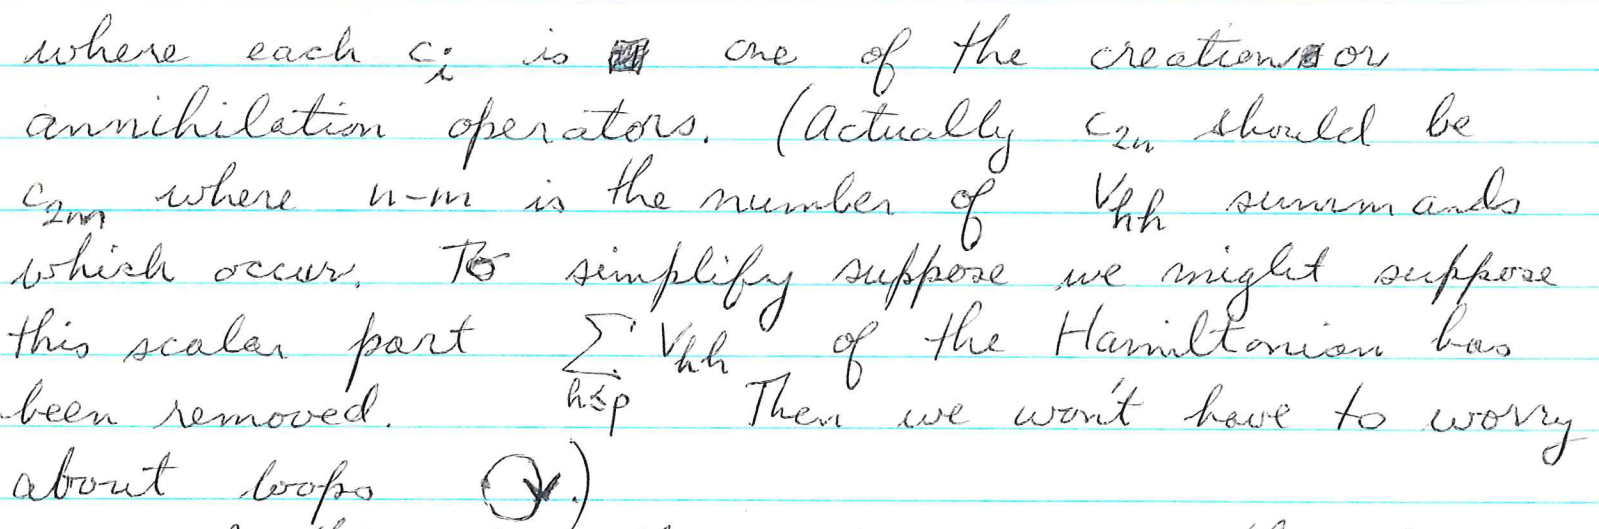 where each c_i is one of the creation or
annihilation operators. (Actually c_{2n} should be
c_{2m} where n-m is the number of V_{hh} summands
which occur. To simplify suppose we might suppose
this scalar part \sum_{h≤p} V_{hh} of the Hamiltonian has
been removed. Then we won't have to worry
about loops .)